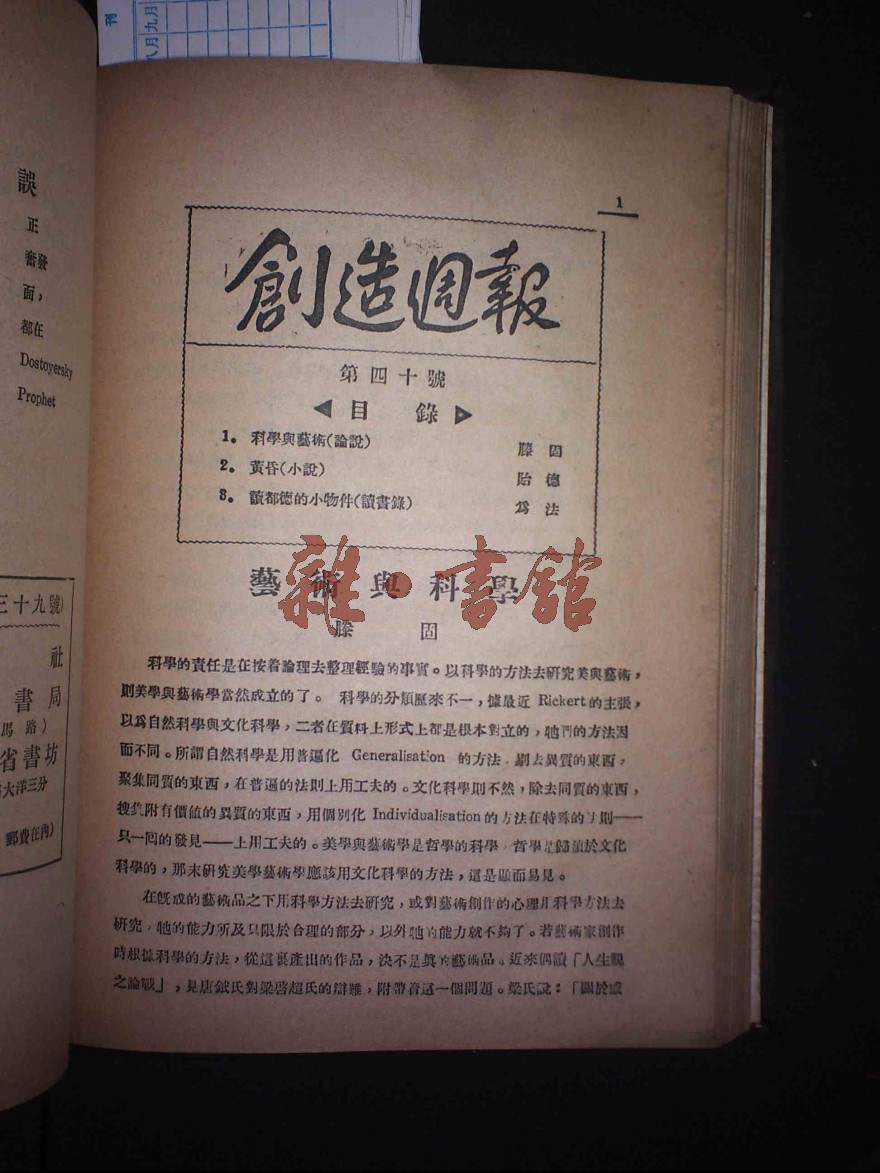 刊
八月九月
誤
正
奮發
面，
都在
Dostoyersky
Prophet
三十九號)
社
書局
馬路)
省書坊
大洋三分
郵費在內)
1
創造週報
第四十號
◀目 錄▶
1。 科學與藝術(論說) 滕固
2。 黃昏(小說) 貽德
3。 讀都德的小物件(讀書錄) 為法
藝術與科學
雜·書館
滕 固
科學的責任是在按着論理去整理經驗的事實。以科學的方法去研究美與藝術，
則美學與藝術學當然成立的了。 科學的分類歷來不一，據最近 Rickert的主張，
以爲自然科學與文化科學，二者在質料上形式上都是根本對立的，牠們的方法因
而不同。所謂自然科學是用普遍化 Generalisation 的方法，剔去異質的東西，
聚集同質的東西，在普遍的法則上用工夫的。文化科學則不然，除去同質的東西，
搜集附有價値的異質的東西，用個別化 Individualisation的方法在特殊的法則——
只一回的發見——上用工夫的。美學與藝術學是哲學的科學，哲學是歸屬於文化
科學的，那末研究美學藝術學應該用文化科學的方法，這是顯而易見。
在旣成的藝術品之下用科學方法去研究，或對藝術創作的心理用科學方法去
研究，牠的能力所及只限於合理的部分，以外牠的能力就不夠了。若藝術家創作
時根據科學的方法，從這裏產出的作品，決不是眞的藝術品。近來偶讀「人生觀
之論戰」，見唐鉞氏對梁啓超氏的辯難，附帶着這一個問題。梁氏說：「關於感